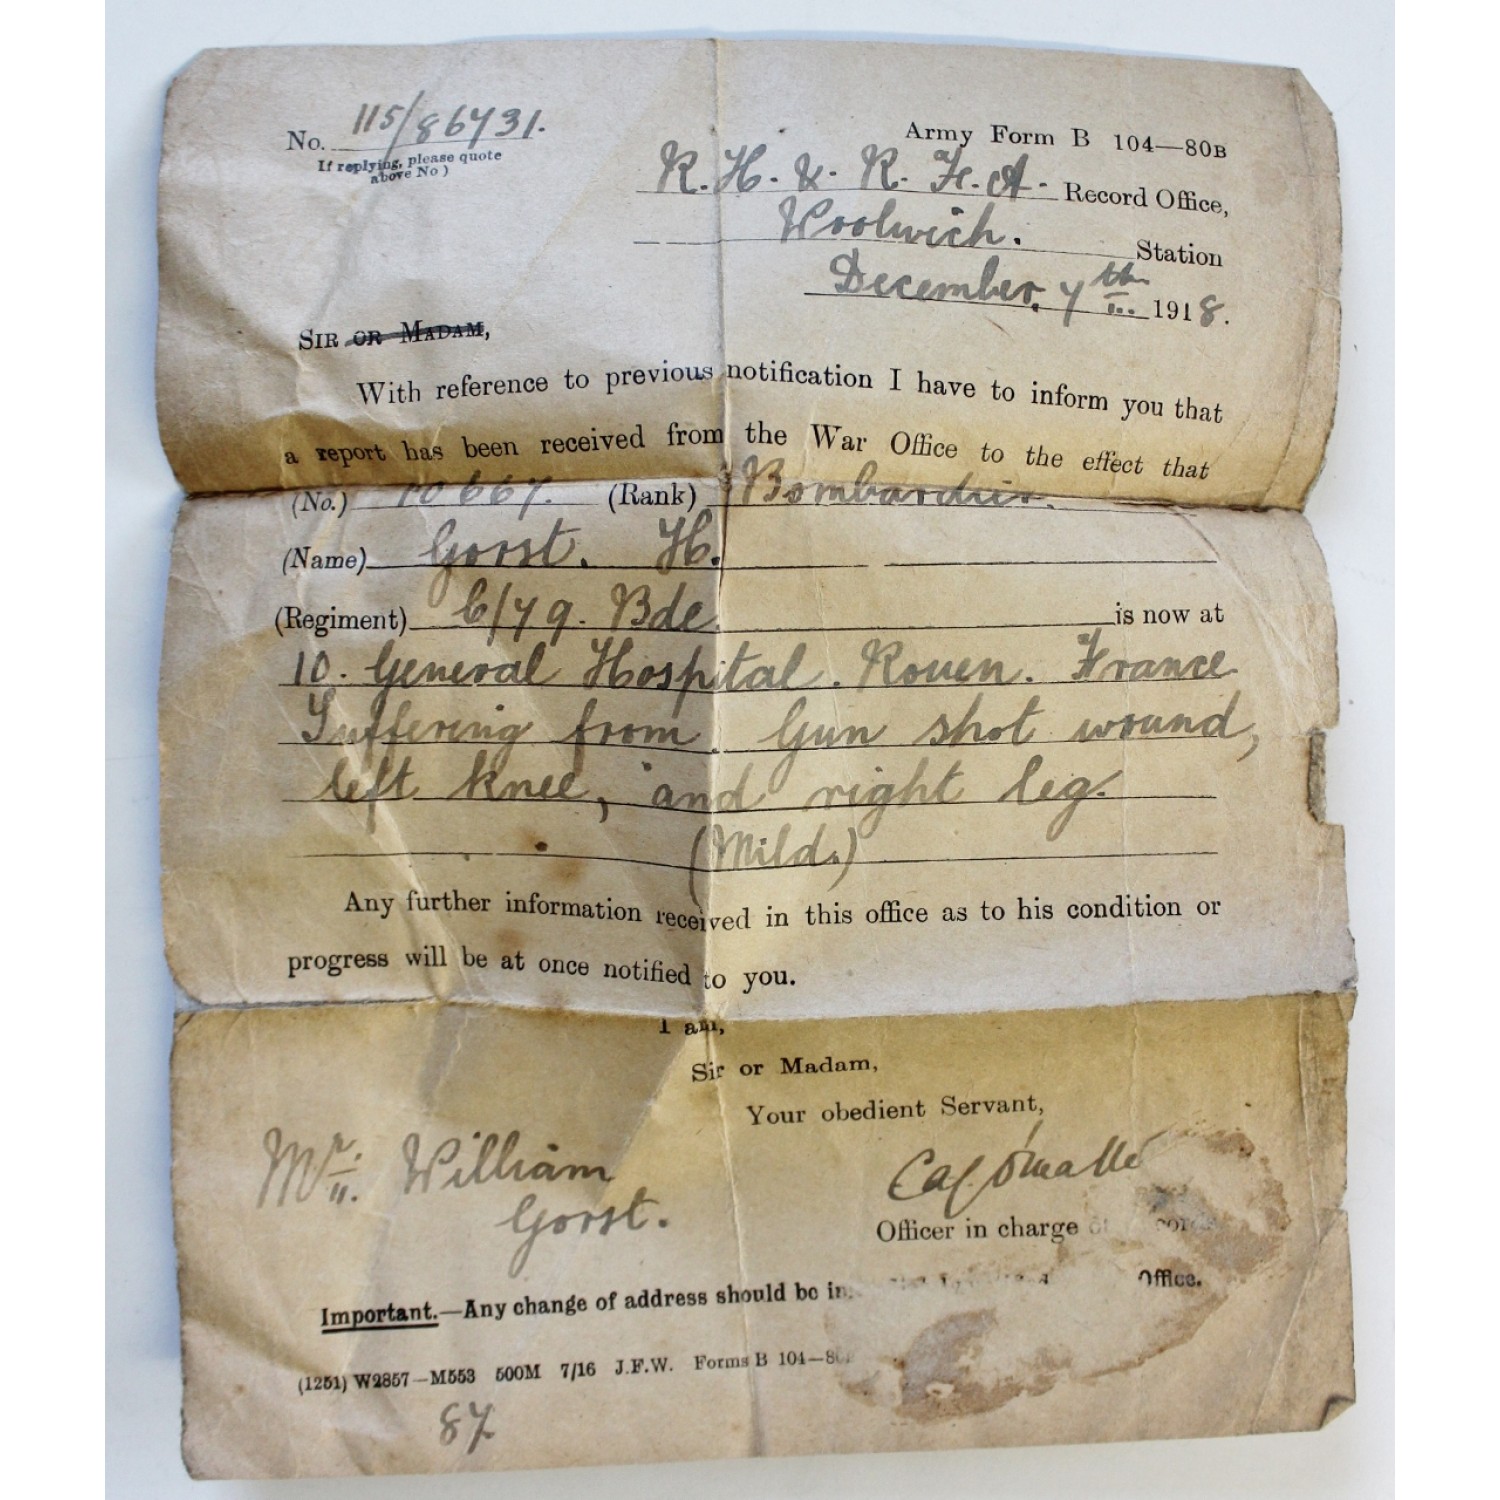 No. 115/86731.
If replying, please quote
above No )
Army Form B 104—80B
R. H. & R. F. A. Record Office,
Woolwich. Station
December, 7th 1918.
SIR OR MADAM,
With reference to previous notification I have to inform you that
a report has been received from the War Office to the effect that
(No.) 10667. (Rank) Bombardier.
(Name) Gorst. H.
(Regiment) /79. Bde. is now at
10. General Hospital. Rouen. France
Suffering from. Gun shot wound,
left knee, and right leg.
(Mild.)
Any further information received in this office as to his condition or
progress will be at once notified to you.
I am,
Sir or Madam,
Your obedient Servant,
Mr. William
Gorst.
Officer in charge of Records
Important.—Any change of address should be Office.
(1251) W2857—M553 500M 7/16 J.F.W. Forms B 104—80
87